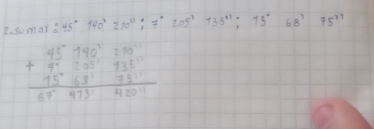 2. sumar: 45° 140' 210''; 7° 205' 135''; 15° 68' 75''
45° 140' 210''
+ 7° 205' 135''
15° 68' 75''
67° 413' 420''